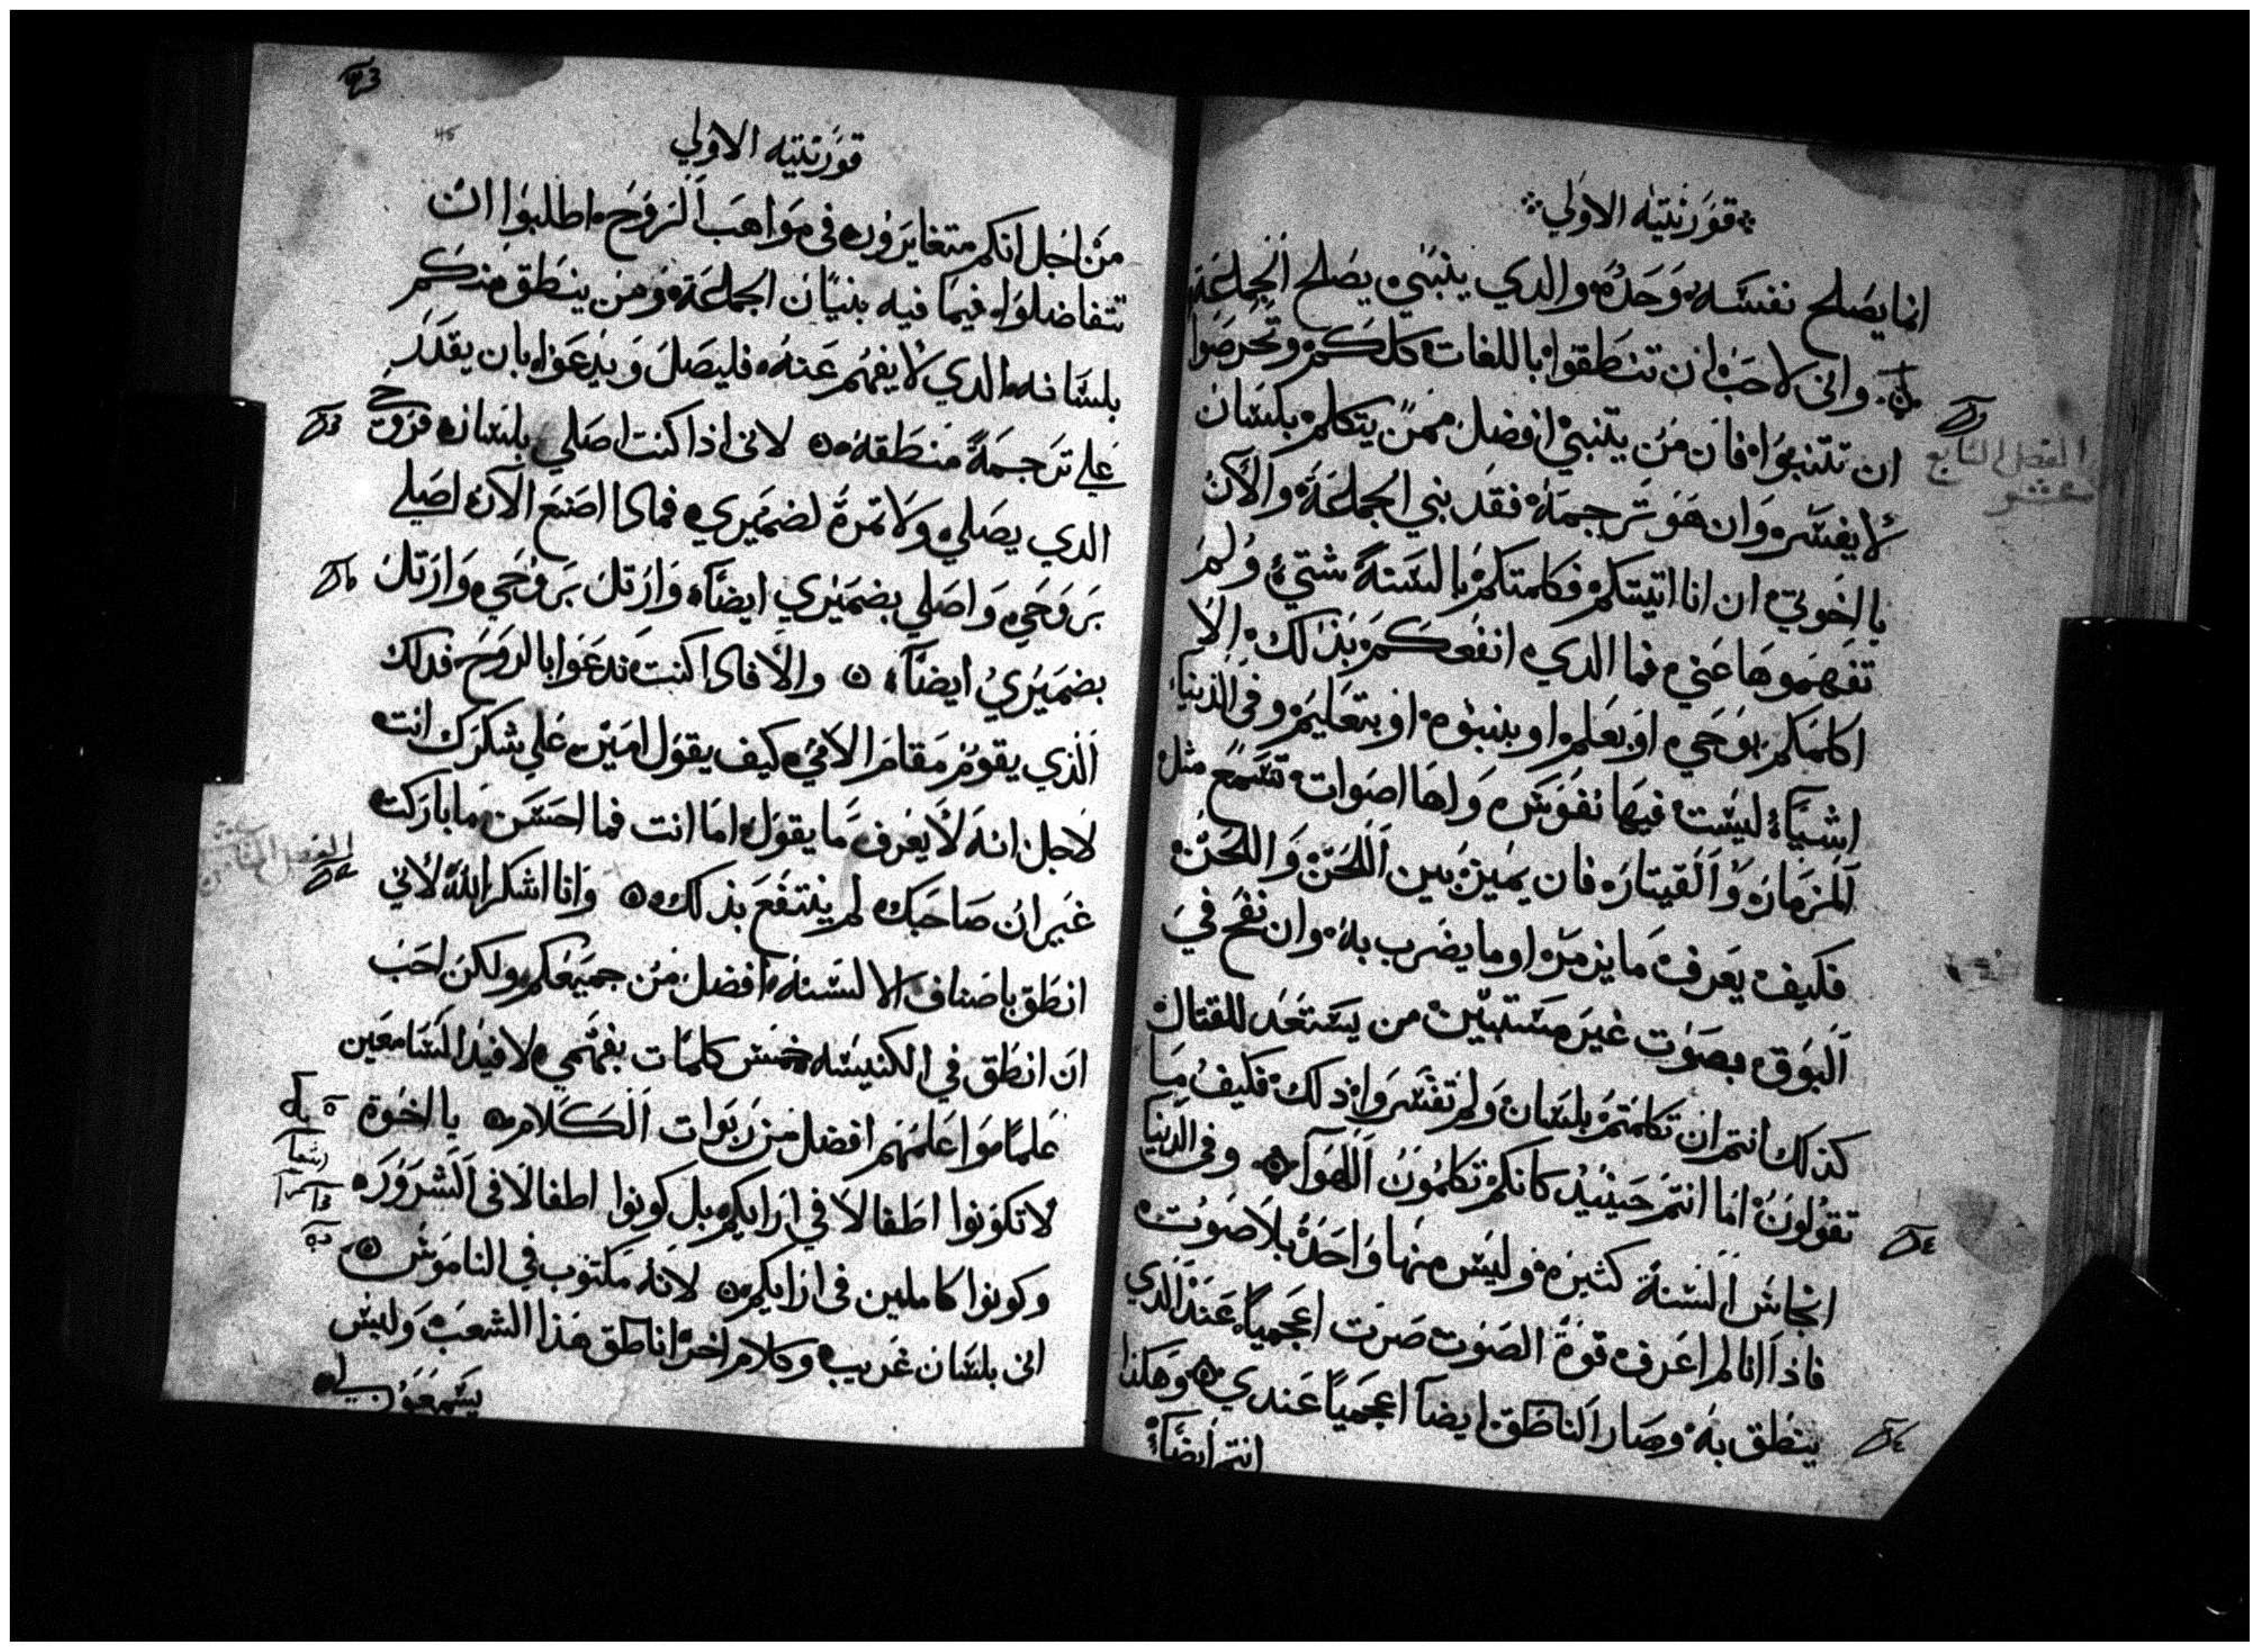 قورنتيه الاولي
انما يصلح نفسه وحده والدي يتنبي يصلح الجماعة
واني لاحب ان تنطقوا باللغات كلكم وتحرصوا
ان تتنبوا فان من يتنبي افضل ممن يتكلم بلسان
لا يفسر وان هو ترجمه فقد بني الجماعة والآن
يا اخوتي ان انا اتيتكم فكلمتكم بالسنة شتي ولم
تفهموها عني فما الدي انفعكم بذلك الا
اكلمكم بوحي او بعلم او بنبوه او بتعليم وفي الدنيا
اشيآء ليست فيها نفوس ولها اصوات تسمع مثل
المزمار والقيتاره فان يميز بين اللحن واللحن
فكيف يعرف ما يزمر او ما يضرب به وان نفخ في
البوق بصوت غير مستبين من يستعد للقتال
كذلك انتم ان تكلمتم بلسان ولم تفسروا ذلك فكيف ما
تقولون اما انتم حينيد كانكم تكلمون الهوآ وفي الدنيا
اجناس السنة كثيره وليس منها واحد بلا صوت
فاذا انا لم اعرف قوة الصوت صرت اعجمياً عند الذي
ينطق به وصار الناطق ايضاً اعجمياً عندي وهكذا
انتم ايضاً
الفصل السابع عشر
43
45
قورنتيه الاولي
من اجل انكم متغايرون في مواهب الروح اطلبوا ان
تتفاضلوا فيما فيه بنيان الجماعة ومن ينطق منكم
بلسانه الدي لا يفهم عنه فليصل ويدعوا بان يقدر
علي ترجمة منطقه لاني اذا كنت اصلي بلسان فروحي
الدي يصلي ولا تمرة لضميري فمادا اصنع الآن اصلي
بروحي واصلي بضميري ايضاً وارتل بروحي وارتل
بضميري ايضاً والا فادا كنت تدعوا بالروح فدلك
الذي يقوم مقام الامي كيف يقول امين علي شكرك انت
لاجل انه لا يعرف ما يقول اما انت فما احسن ما باركت
غير ان صاحبك لم ينتفع بذلك وانا اشكر الله لاني
انطق باصناف الالسنه افضل من جميعكم ولكن احب
ان انطق في الكنيسه خمس كلمات بفهمي لافيد السامعين
علماً واعلمهم افضل من ربوات الكلام يا اخوة
لا تكونوا اطفالا في ارايكم بل كونوا اطفالا في الشروره
وكونوا كاملين في ارايكم لانه مكتوب في الناموس
اني بلسان غريب وكلام اخر اناطق هذا الشعب وليس
يسمعون لي